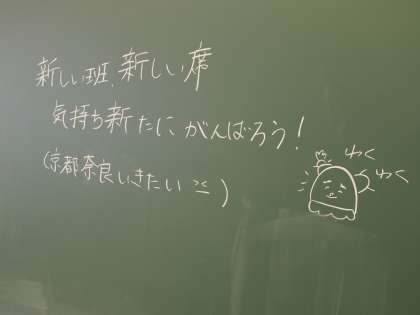 新しい班、新しい席
気持ち新たにがんばろう!
(京都奈良いきたい)
わく
わく